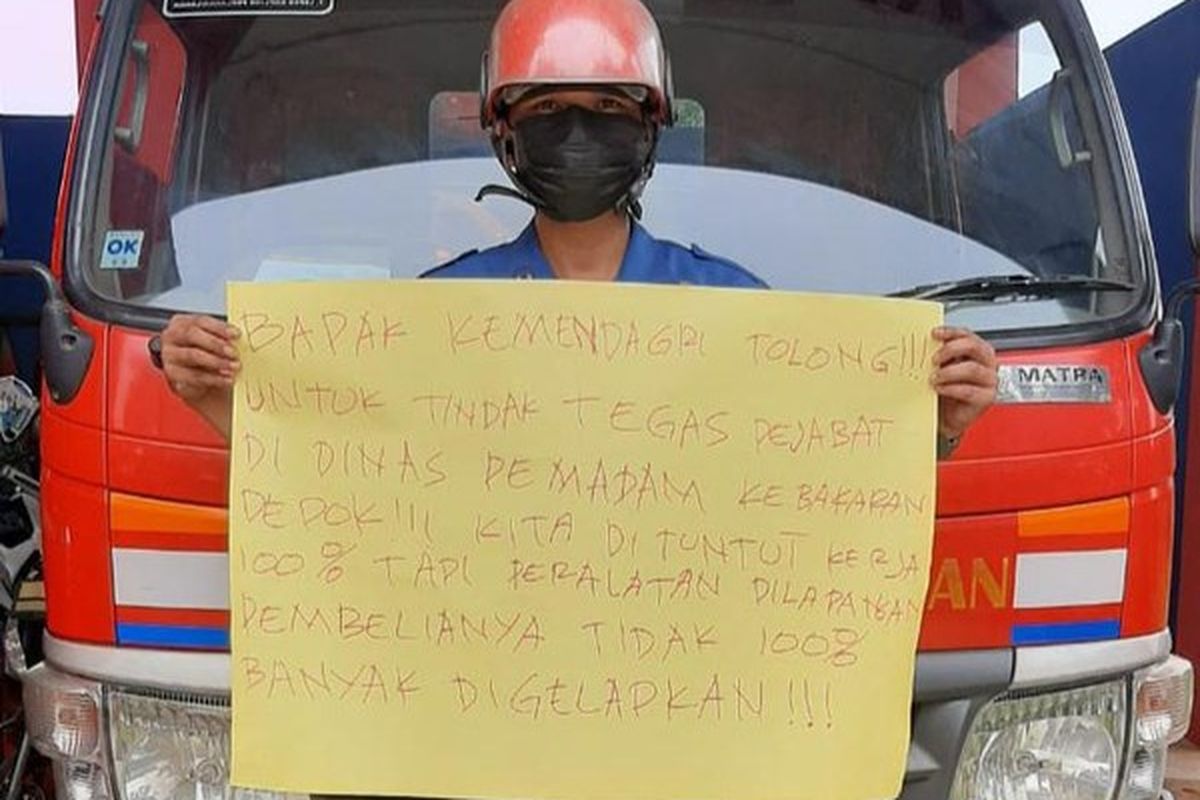 OK
BAPAK KEMENDAGRI TOLONG!!!
UNTUK TINDAK TEGAS PEJABAT
DI DINAS PEMADAM KEBAKARAN
DEPOK!!! KITA DI TUNTUT KERJA
100% TAPI PERALATAN DILAPANGAN
PEMBELIANYA TIDAK 100%
BANYAK DIGELAPKAN!!!
MATRA
AN